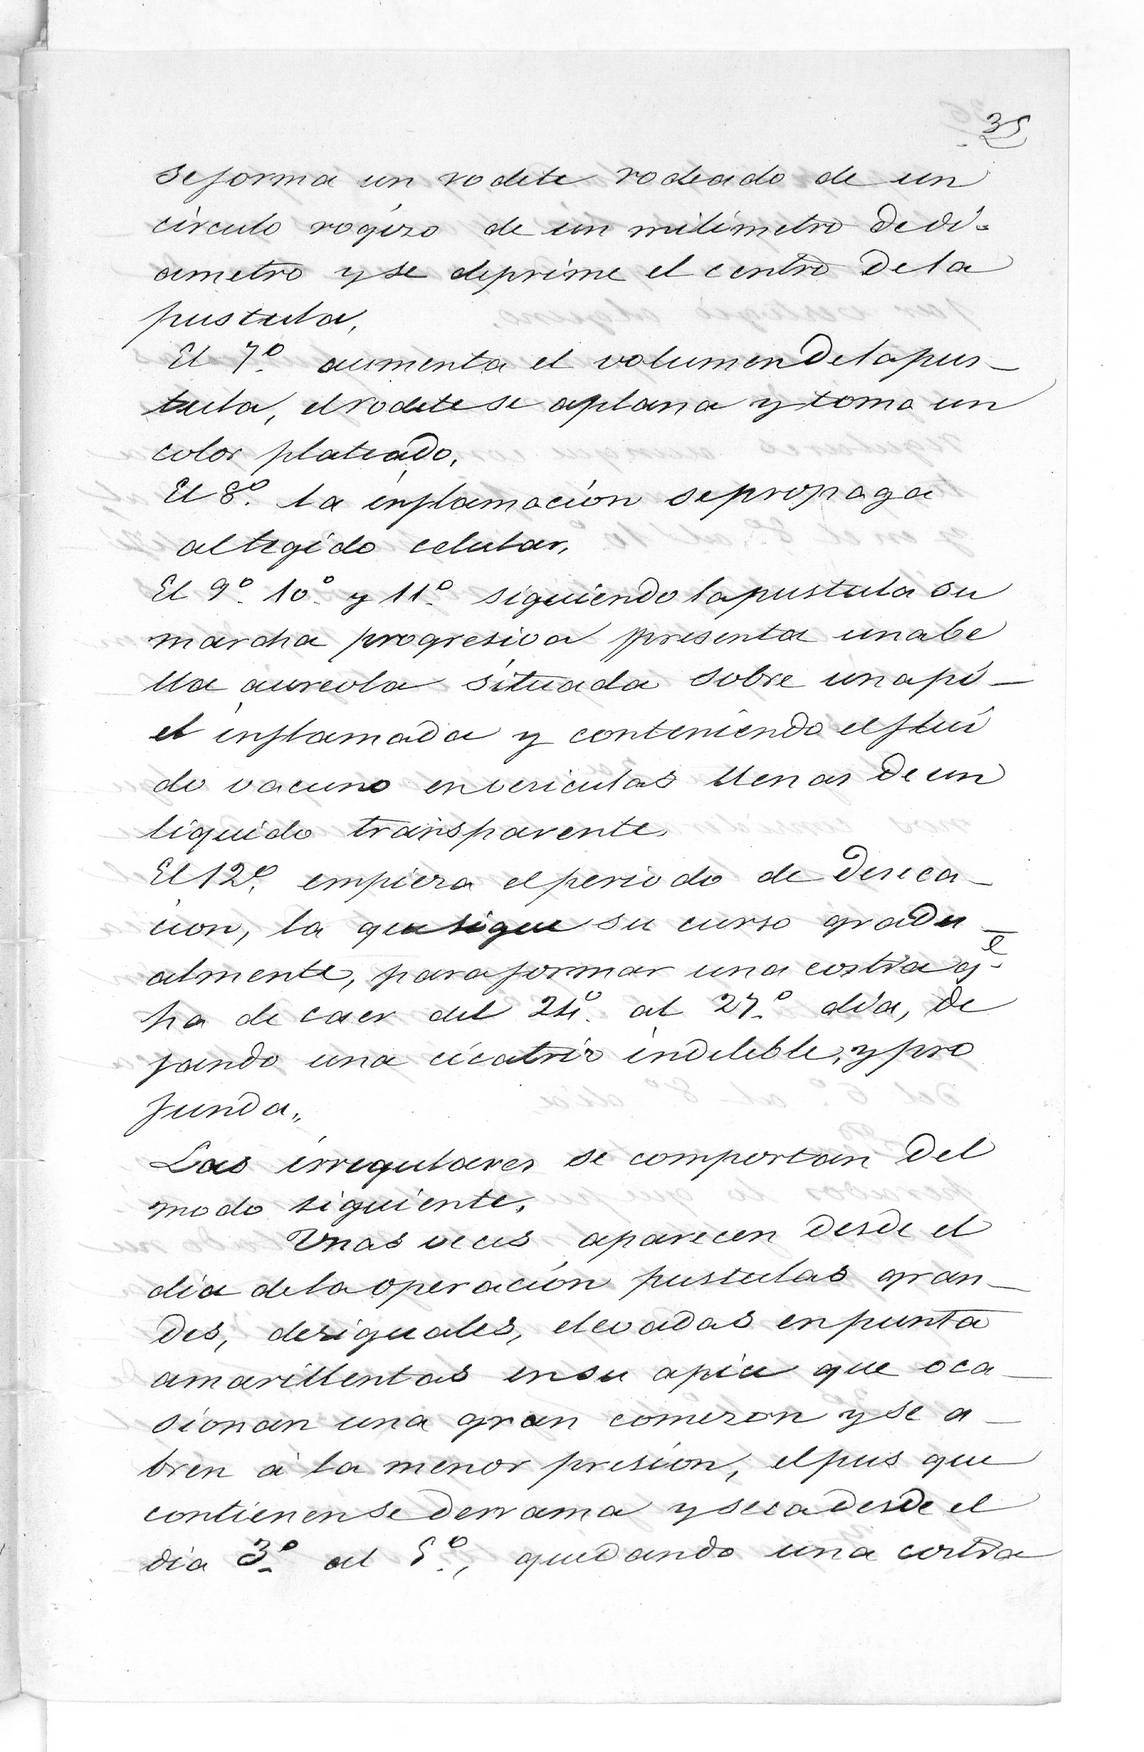 35
se forma un rodete rodeado de un
circulo rogizo de un milimetro de di-
ametro y se deprime el centro de la
pustula,
El 7º aumenta el volumen de la pus-
tula, el rodete se aplana y toma un
color plateado,
El 8º la inflamacion se propaga
al tegido celular,
El 9º 10º y 11º siguiendo la pustula su
marcha progresiva presenta una be
lla aureola situada sobre una pi-
el inflamada y conteniendo el flui
do vacuno en vesiculas llenas de un
liquido transparente,
El 12º empieza el periodo de deseca-
cion, la que sigue su curso gradu-
almente, para formar una costra qe
ha de caer del 24º al 27º dia, de
jando una cicatriz indeleble, y pro
funda,,
Las irregulares se comportan del
modo siguiente,
Unas veces aparecen desde el
dia de la operacion pustulas gran-
des, desiguales, elevadas en punta
amarillentas en su apice que oca-
sionan una gran comezon y se a-
bren á la menor presion, el pus que
contienen se derrama y seca desde el
dia 3º al 5º, quedando una costra